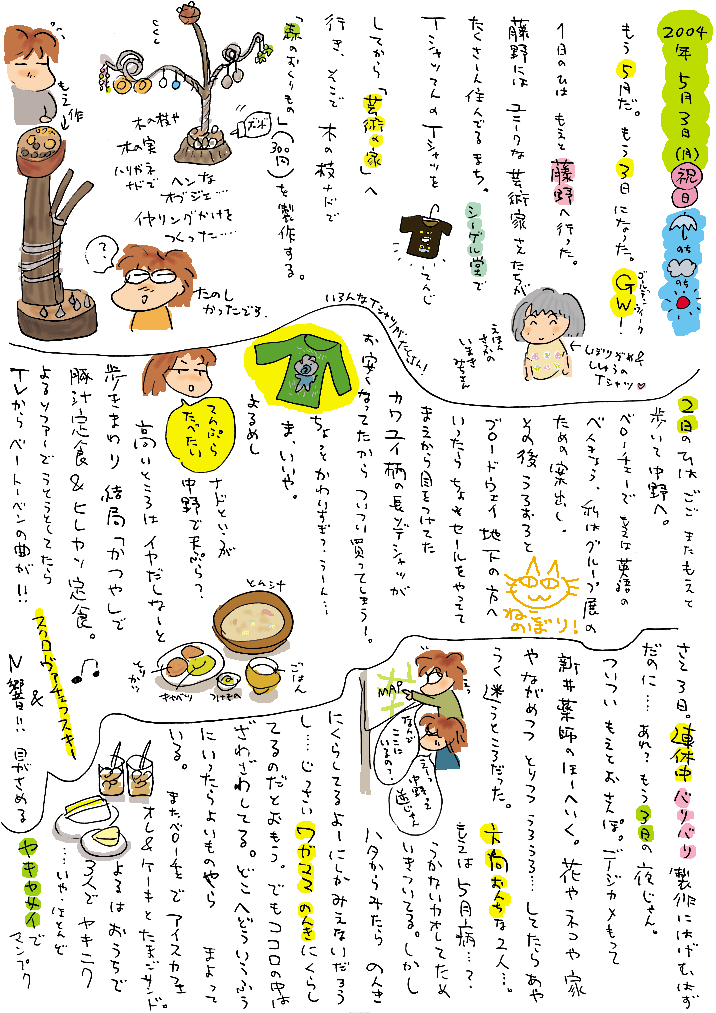 2004年 5月3日(月)祝日 のち のち
もう5月だ。もう3日になった。GW!
ゴールデンウィーク
1日のひは もえと藤野へ行った。
藤野には ユニークな芸術家さんたちが
たくさーん住んでるまち。シーゲル堂で
Tシャツてんの Tシャツを
てんじ
してから「芸術の家」へ
行き、そこで 木の枝ナドで
「森のおくりもの」(300円)を製作する。
しぼりぞめ&
ししゅうの
Tシャツ
えほん
さっかの
いまき
みちさん
ズレ本
木の枝や
木の実
ハリガネ
ナドで
ヘンな
オブジェ……
イヤリングかけを
つくった……
もえ作
?
たのし
かったでござる。
いろんなTシャツがたくさん!
2日のひは ごご またもえと
歩いて中野へ。
ベローチェで もえは英語の
べんきょう、私はグループ展の
ための案出し。
その後 うろおろと
ブロードウェイ地下の方へ
いったら ちょっとセールをやってて
まえから目をつけてた
カワユイ柄の長ソデシャツが
お安くなってたから ついつい買ってしまう〜。
ちょっとかわいすぎ?うーん…
ま、いいや。
よるめし
てんぷら
たべたい
ナドというが
中野で天ぷらっ?
高いところは イヤだしなーと
歩きまわり 結局「かつや」で
豚汁定食&ヒレカツ定食。
よるソファーでうとうとしてたら
TVから ベートーベンの曲が!!
スクロヴァチェフスキー
&
N響!! 目がさめる
とん汁
ごはん
つけもの
キャベツ
ねこ
のぼり!
さて3日。連休中 バリバリ製作にはげむはず
だのに…… あれ?もう3日の夜じゃん。
ついつい もえとおさんぽ。デージカメもって
新井薬師のほーへいく。花やネコや家
やながめつつ とりつつ うろうろ…してたら あや
うく迷うところだった。
方向おんちな2人…。
MAP
なんで
ここに
いるの?
えーっ
中野って
逆じゃん
もえは5月病…?
うかないカオしてため
いきついてる。しかし
ハタからみたら のんき
にくらしてるよーにしかみえないだろう
し… じっさい ワガママ のんきにくらし
てるのだとおもう。でもココロの中は
ざわざわしてる。どこへどういうふう
にいったらよいものやら まよって
いる。またベローチェで アイスカフェ
オレ&ケーキとたまごサンド。
よるはおうちで
3人で ヤキニク
……いや、ほとんど
ヤキヤサイで
マンプク